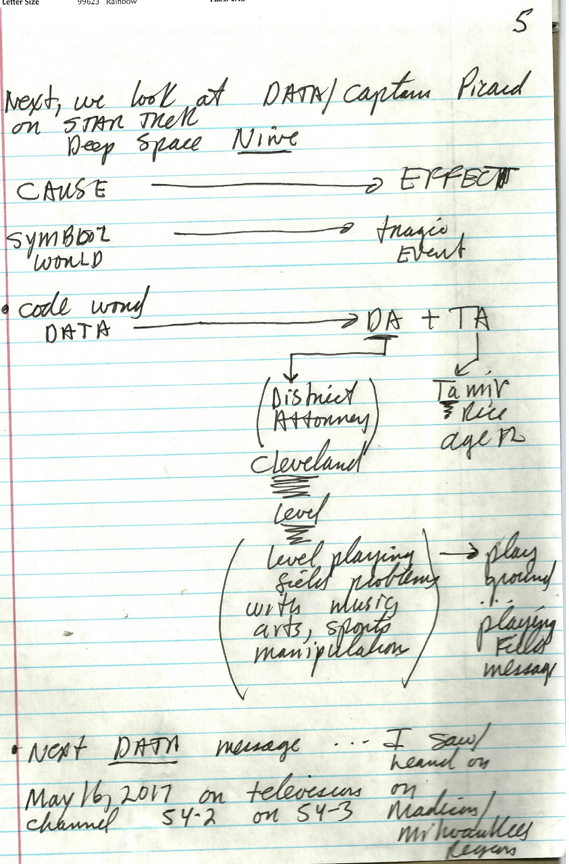 Letter Size 99623 Rainbow
5
Next, we look at DATA/Captain Picard
on STAR TREK
Deep Space Nine
CAUSE EFFECT
SYMBBOL tragic
WORLD Event
• code word
DATA DA + TA
(District Tamir
Attorney) Rice
Cleveland age 12
Level
(level playing play
field problems ground
with music ...
arts, sports playing
manipulation) Field
message
• NEXT DATA message ... I saw/
heard on
May 16, 2017 on television on
channel 54-2 on 54-3 Madison/
Milwaukee